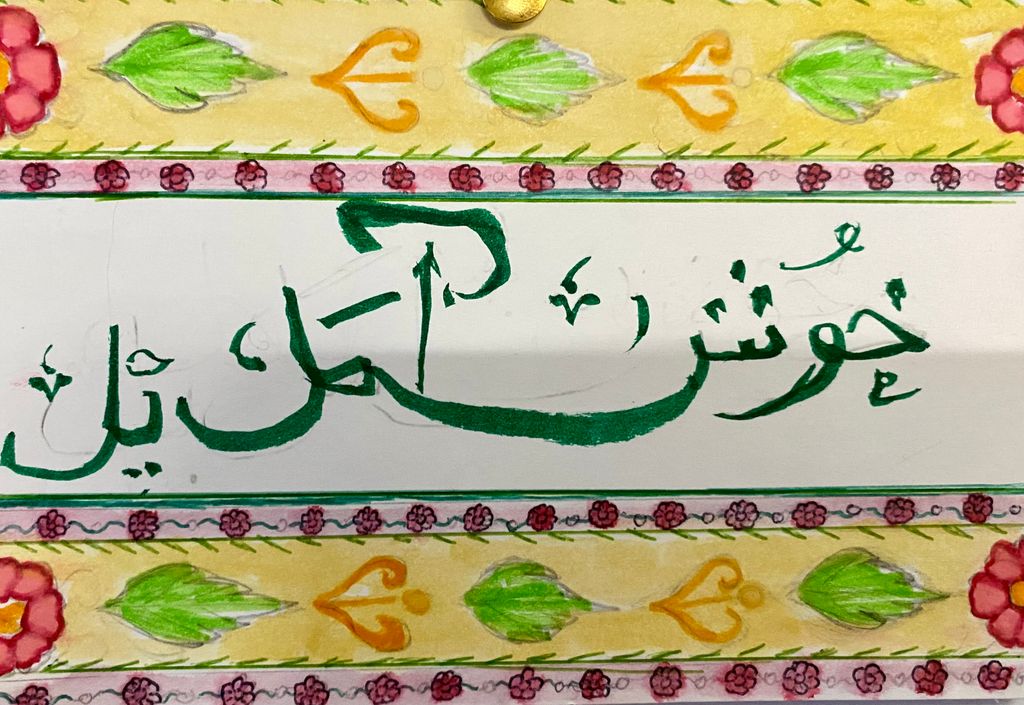 خُوش آمدید